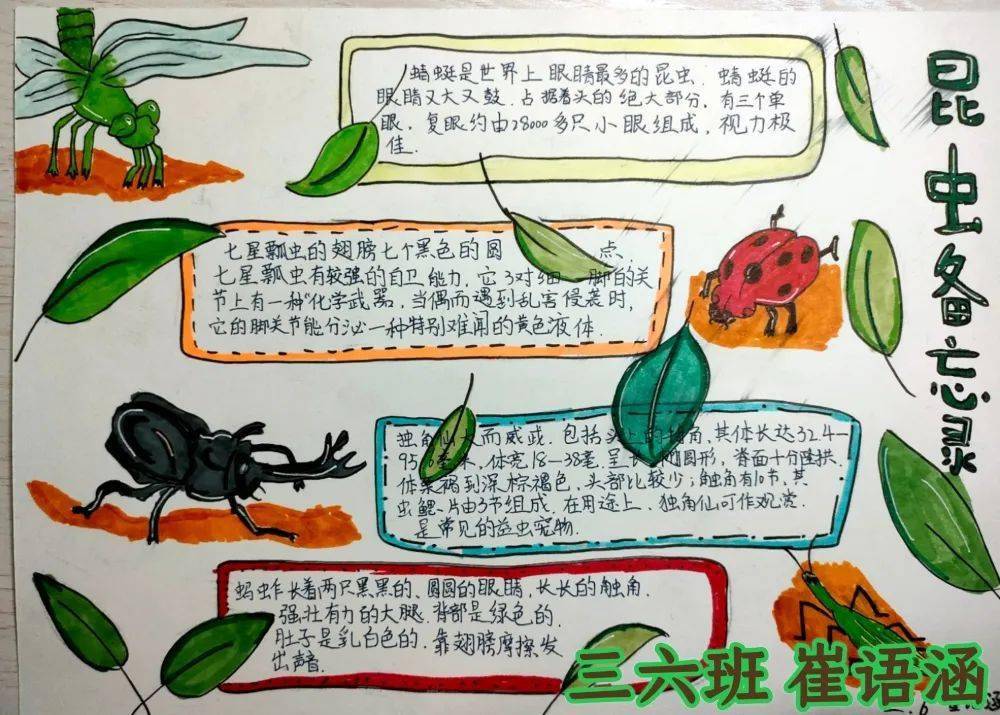 昆虫备忘录
蜻蜓是世界上眼睛最多的昆虫.蜻蜓的
眼睛又大又鼓.占据着头的绝大部分.有三个单
眼.复眼约由28000多只小眼组成,视力极
佳.
七星瓢虫的翅膀七个黑色的圆点.
七星瓢虫有较强的自卫能力.它3对细脚的关
节上有一种"化学武器.当偶而遇到乱害侵袭时,
它的脚关节能分泌一种特别难闻的黄色液体.
独角仙大而威武.包括头上的角,其体长达32.4-
95.毫米,体宽18-38毫.呈长椭圆形,脊面十分隆拱.
体栗褐到深棕褐色,头部比较少;触角有10节,其
虫鳃片由3节组成.在用途上.独角仙可作观赏.
是常见的益虫宠物.
蚂蚱长着两只黑黑的、圆圆的眼睛,长长的触角.
强壮有力的大腿.背部是绿色的.
肚子是乳白色的.靠翅膀摩擦发
出声音.
三六班 崔语涵